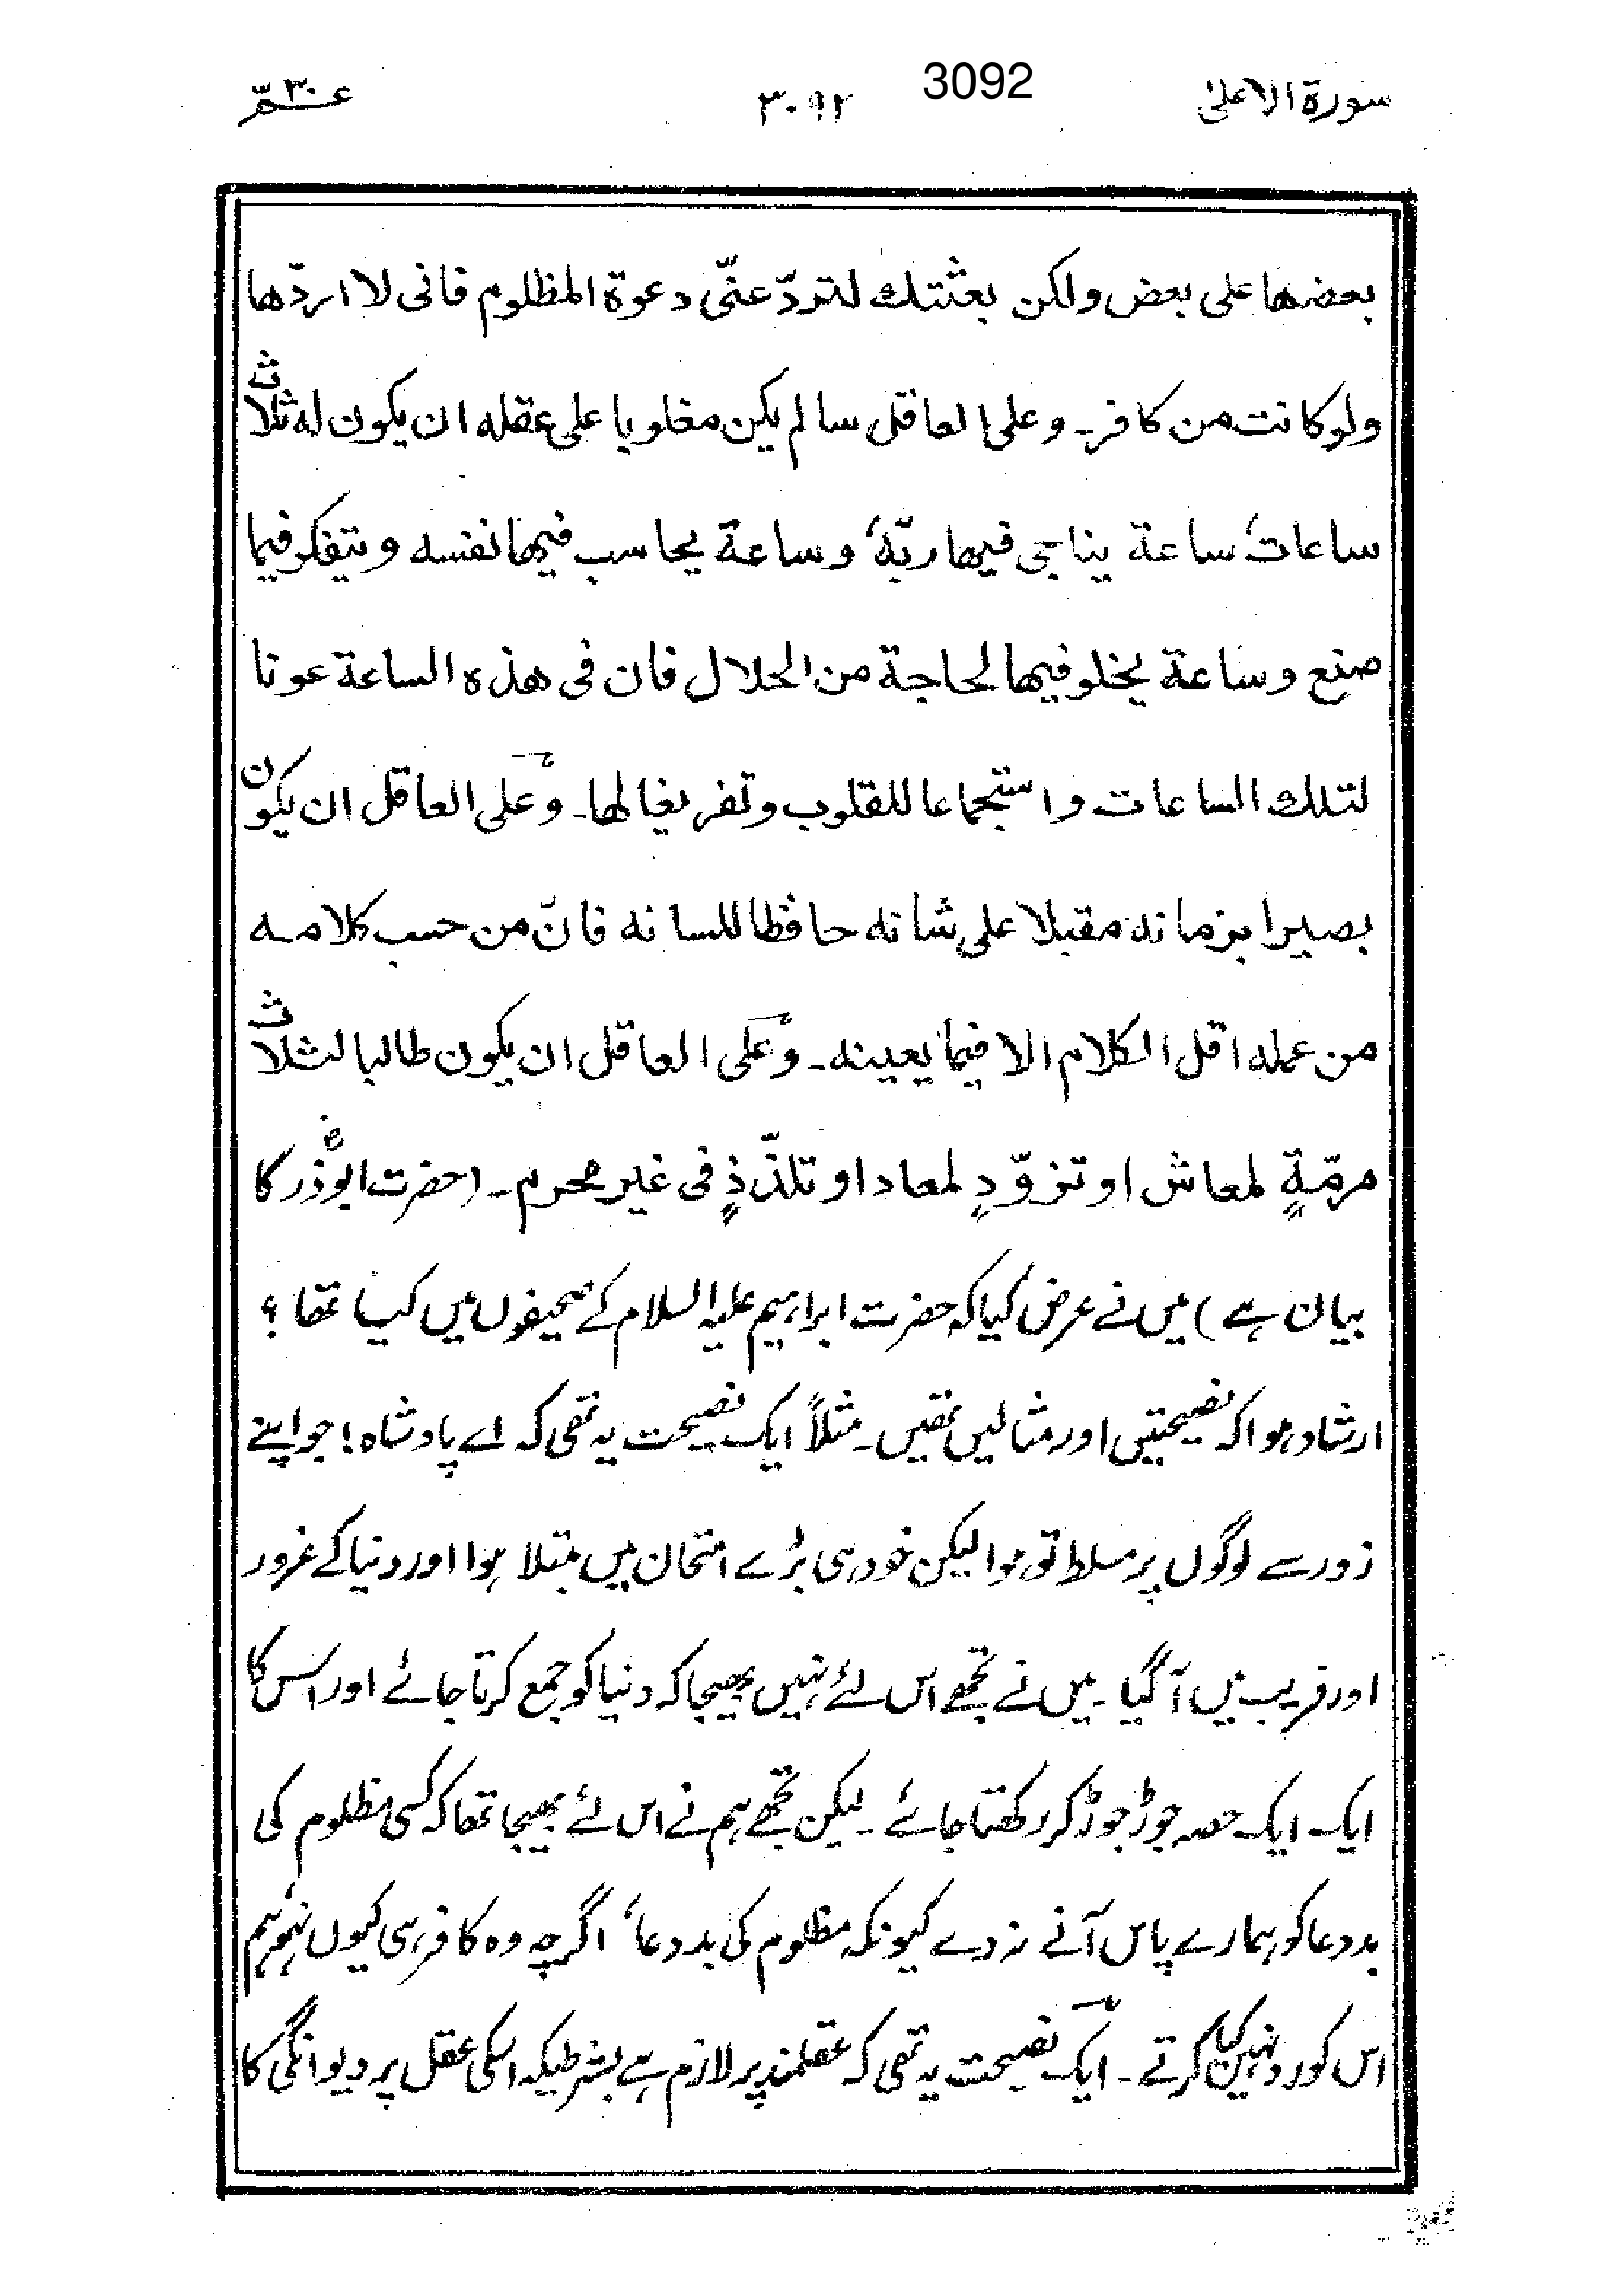 سورة الاعلیٰ ۳۰۹۲ 3092 عـــمّ ۳۰
بعضها علی بعض ولکن بعثتک لتردّ عنّی دعوة المظلوم فانی لا اردّها
ولو کانت من کافر۔ وعلی العاقل سا لم یکن مغلوبا علی عقله ان یکون له ثلاث
ساعات، ساعة یناجی فیها ربّهٗ، وساعة یحاسب فیها نفسه ویتفکر فیما
صنع وساعة یخلو فیها لحاجة من الحلال فان فی هذه الساعة عونا
لتلک الساعات واستجماعا للقلوب وتفریغا لها۔ وعلی العاقل ان یکون
بصیرا بزمانه مقبلا علی شانه حافظا للسانه فانّ من حسب کلامه
من عمله اقل الکلام الا فیما یعینه۔ وعلی العاقل ان یکون طالبا لثلاث
مرمّةٍ لمعاش او تزوّدٍ لمعاد او تلذّذٍ فی غیر محرم۔ (حضرت ابوذرؓ کا
بیان ہے) میں نے عرض کیا کہ حضرت ابراہیم علیہ السلام کے صحیفوں میں کیا تھا؟
ارشاد ہوا کہ نصیحتیں اور مثالیں تھیں۔ مثلاً ایک نصیحت یہ تھی کہ اے پادشاہ! جو اپنے
زور سے لوگوں پر مسلط تو ہوا لیکن خود ہی بڑے امتحان میں مبتلا ہوا اور دنیا کے غرور
اور فریب میں آ گیا۔ میں نے تجھے اس لئے نہیں بھیجا کہ دنیا کو جمع کرتا جائے اور اس کا
ایک ایک حصہ جوڑ جوڑ کر رکھتا جائے۔ لیکن تجھے ہم نے اس لئے بھیجا تھا کہ کسی مظلوم کی
بد دعا کو ہمارے پاس آنے نہ دے کیونکہ مظلوم کی بد دعا، اگرچہ وہ کافر ہی کیوں نہ ہو ہم
اس کو رد نہیں کیا کرتے۔ ایک نصیحت یہ تھی کہ عقلمند پر لازم ہے بشرطیکہ اسکی عقل پر دیوانگی کا